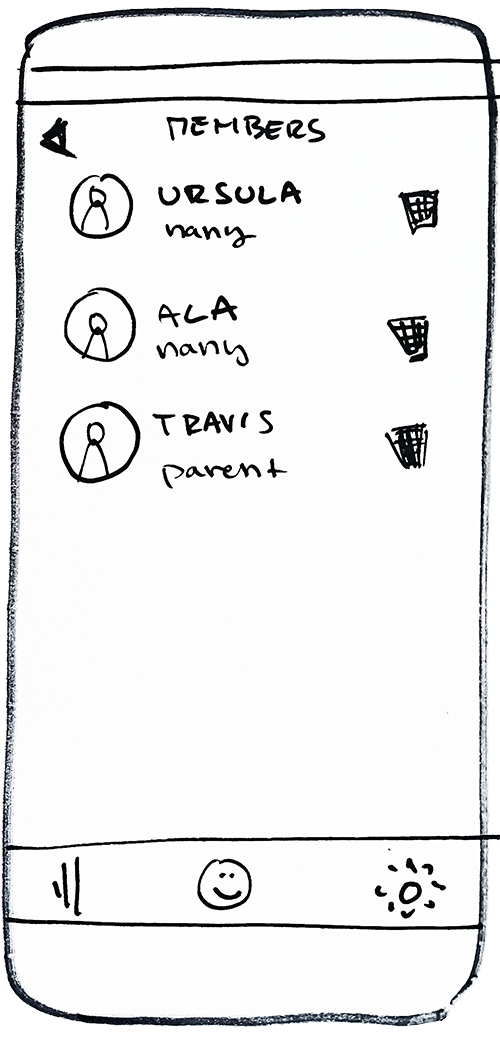 MEMBERS
URSULA
nany
ALA
nany
TRAVIS
parent